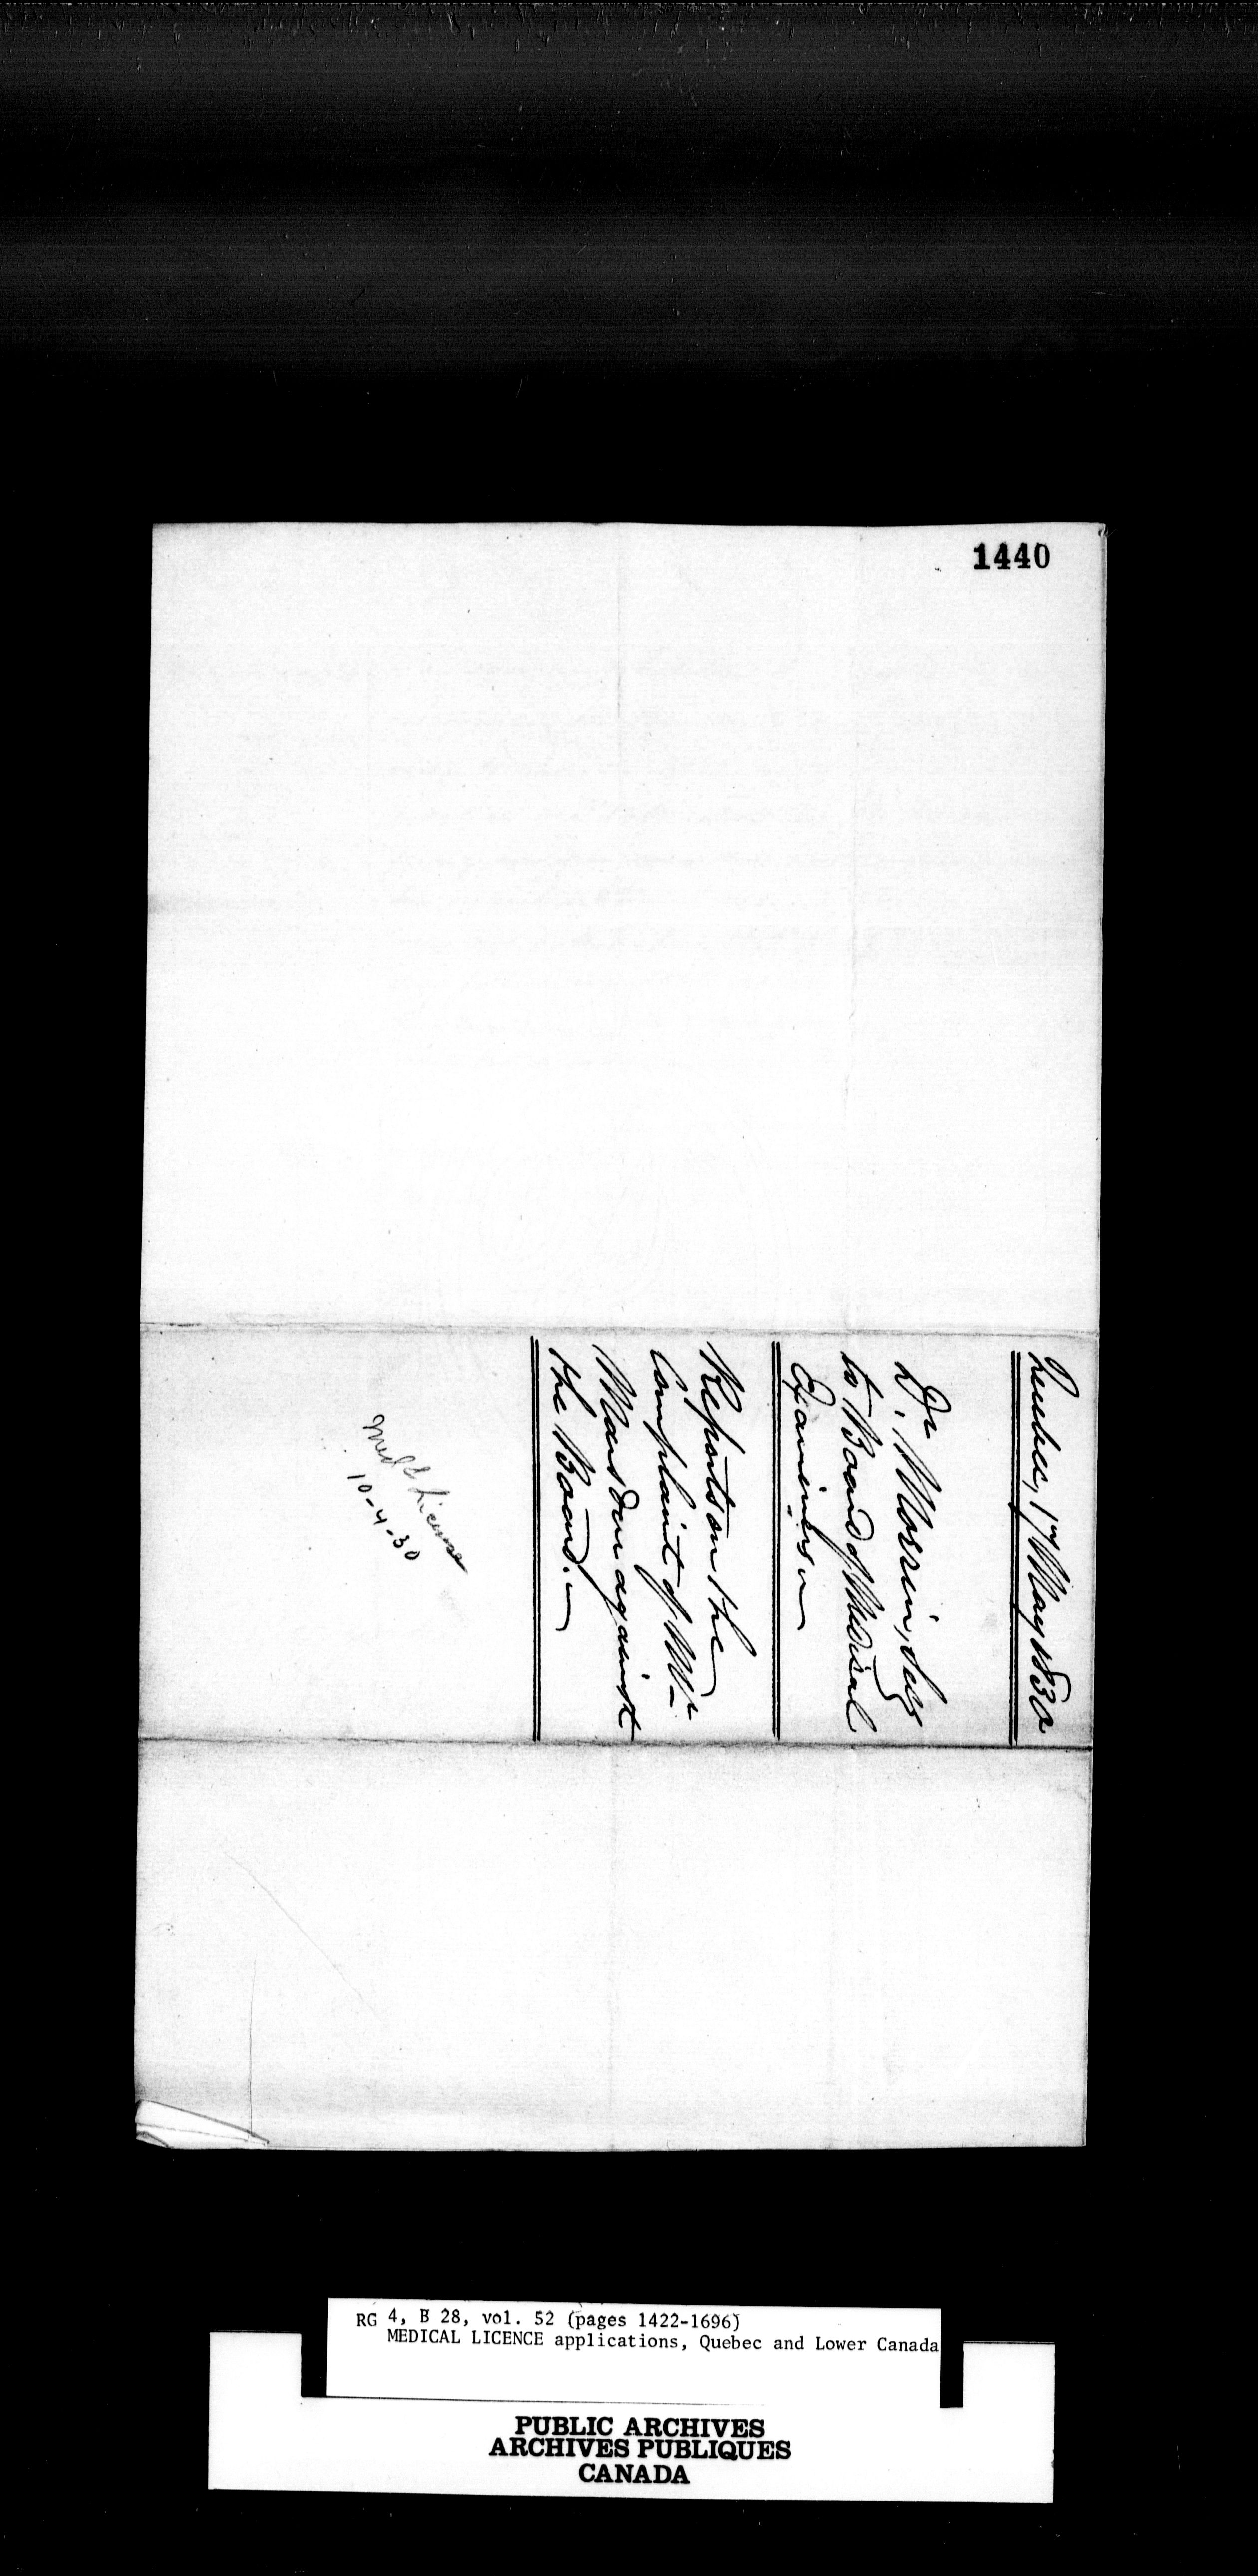 1440
Quebec, 1st May 1830
Dr. Morrin, Secy
to Board of Medical
Examiners
Reports on the
Complaint of Mr
Marsden against
the Board.
Med License
10-4-30
RG 4, B 28, vol. 52 (pages 1422-1696)
MEDICAL LICENCE applications, Quebec and Lower Canada
PUBLIC ARCHIVES
ARCHIVES PUBLIQUES
CANADA